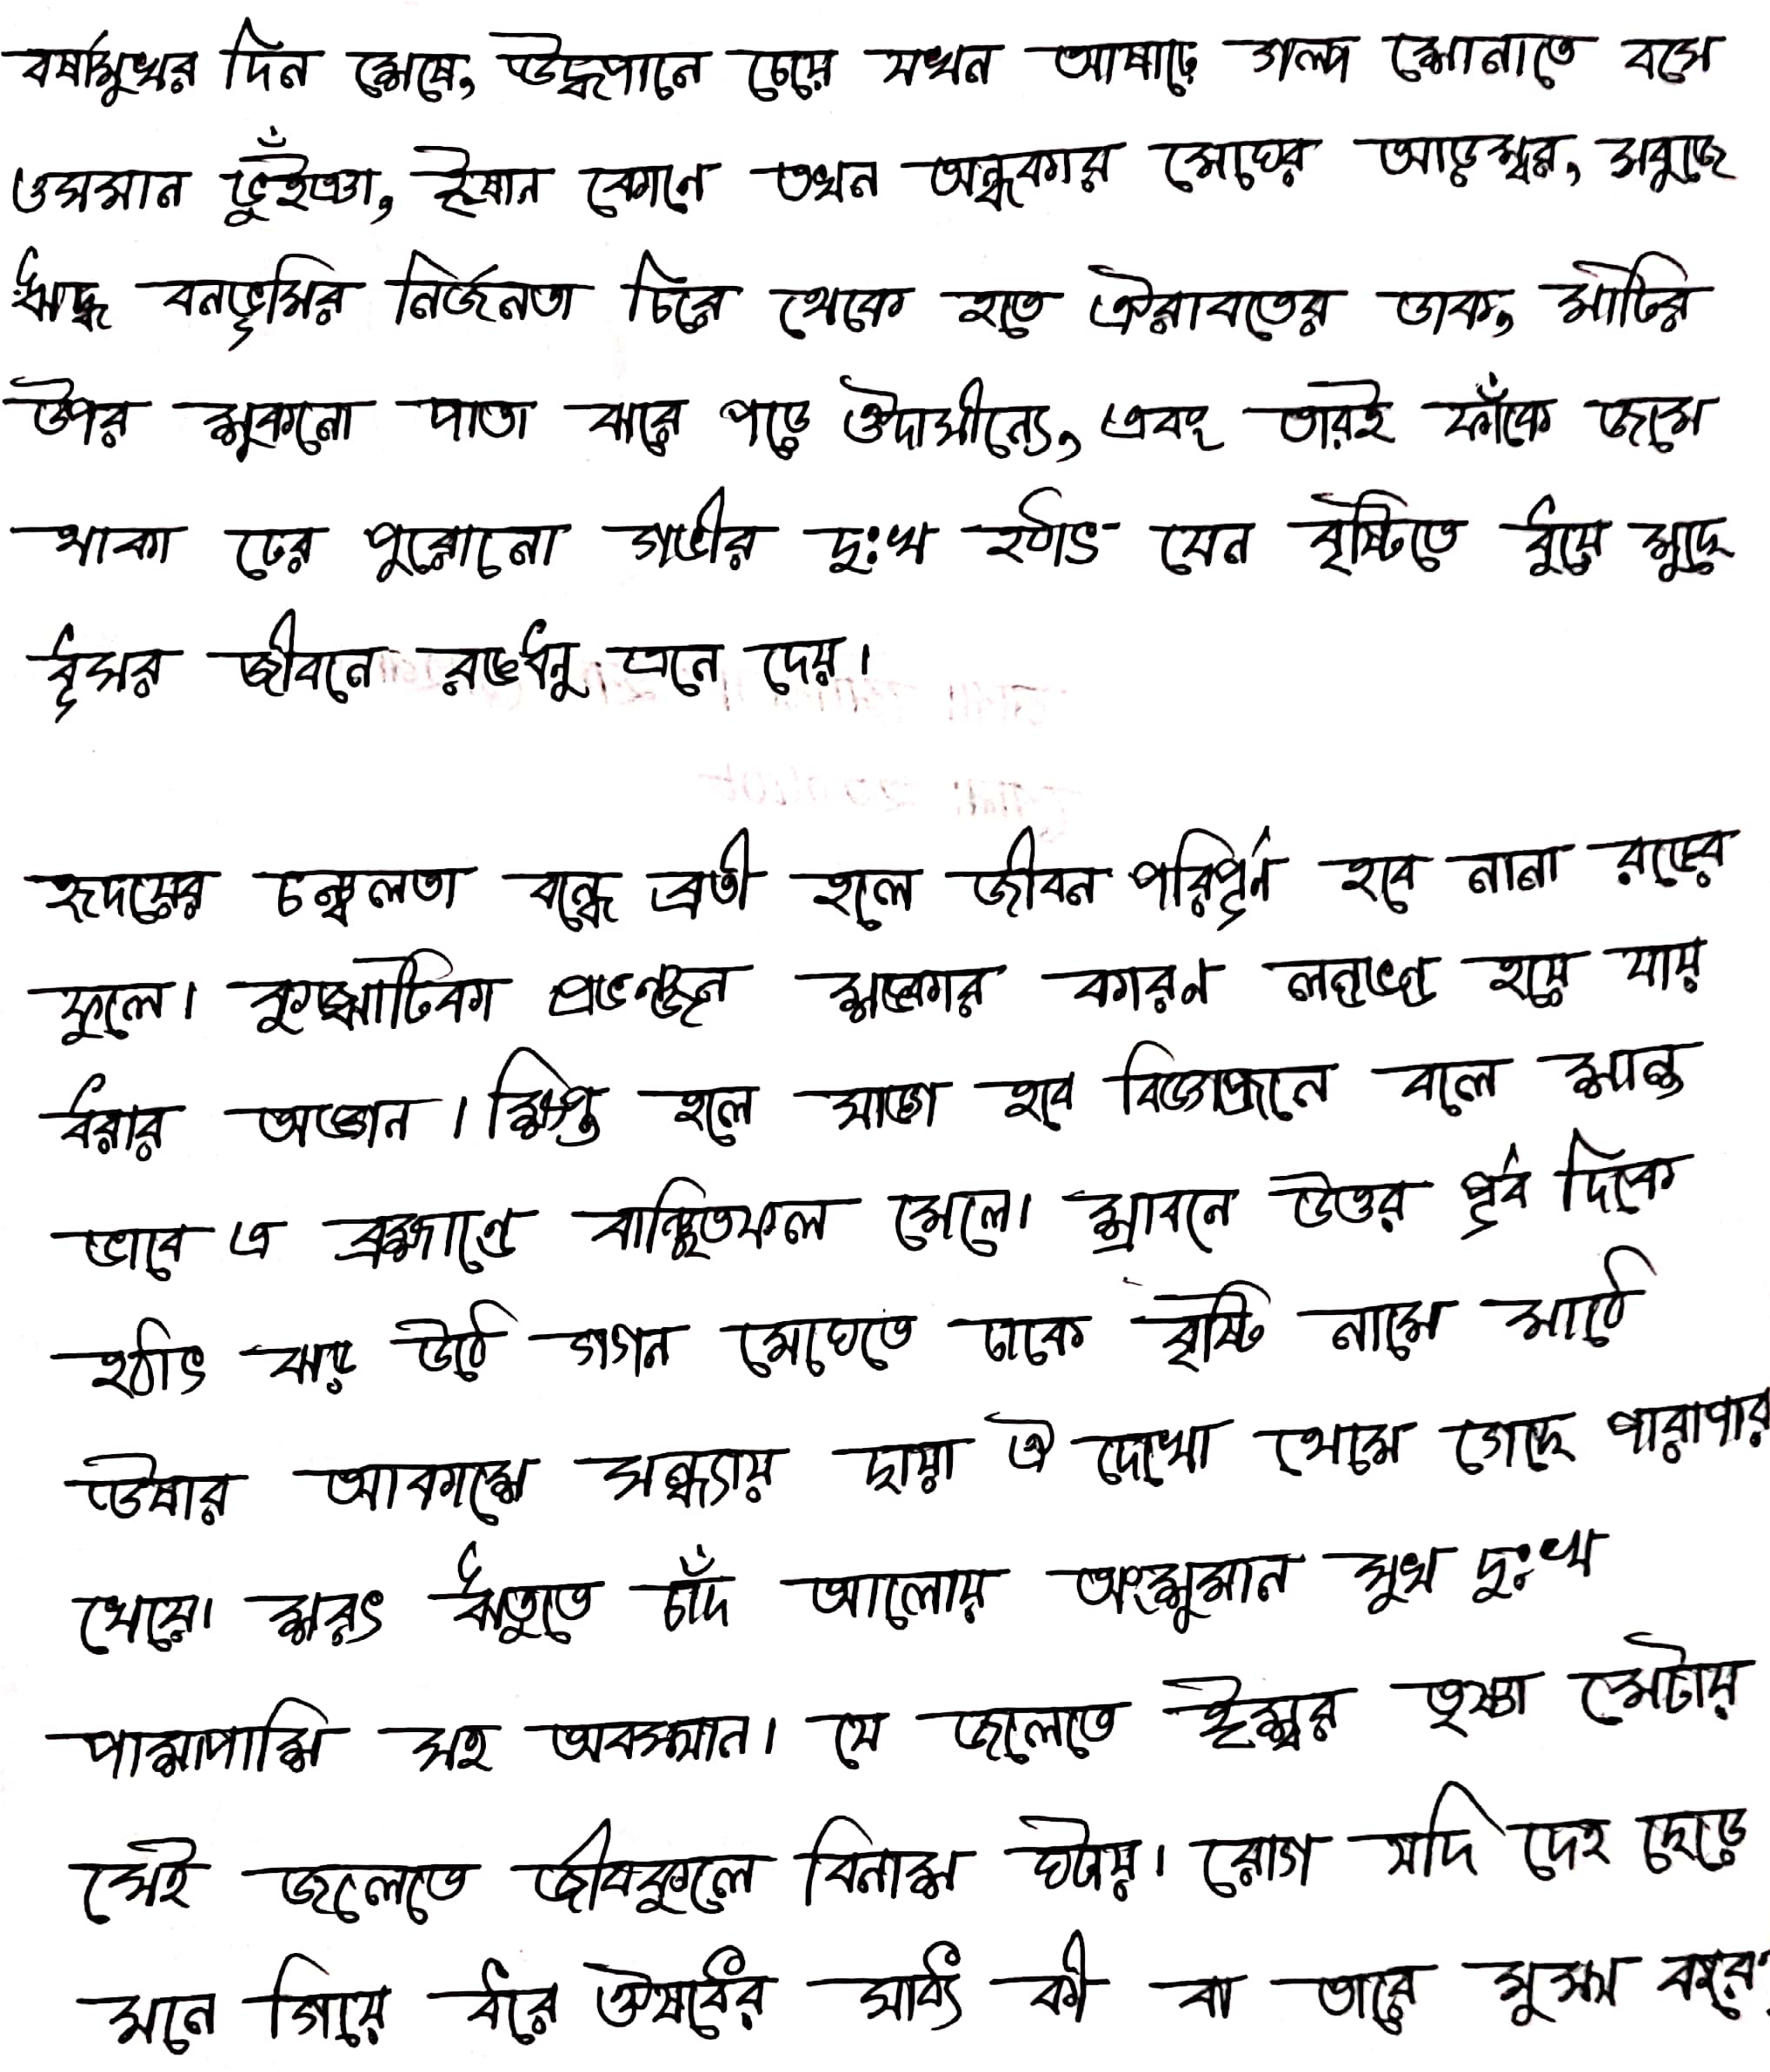 বর্ষামুখর দিন শেষে, ঊর্দ্ধপানে চেয়ে যখন আষাঢ়ে গল্প শোনাতে বসে
ওসমান ভুঁইঞা, ঈষান কোণে তখন অন্ধকার মেঘের আড়ম্বর, সবুজে
ঋদ্ধ বনভূমির নির্জনতা চিরে থেকে হতে ঐরাবতের ডাক, মাটির
উপর শুকনো পাতা ঝরে পড়ে ঔদাসীন্যে, এবং তারই ফাঁকে জমে
থাকা ঢের পুরোনো গভীর দুঃখ হঠাৎ যেন বৃষ্টিতে ধুয়ে মুছে
ধূসর জীবনে রঙধনু এনে দেয়।
হৃদয়ের চঞ্চলতা বন্ধে ব্রতী হলে জীবন পরিপূর্ন হবে নানা রঙের
ফুলে। কুজ্ঝটিকা প্রভঞ্জন শঙ্কার কারণ লণ্ডভণ্ড হয়ে যায়
ধরার অঙ্গন। ক্ষিপ্ত হলে সাঙ্গ হবে বিজ্ঞজনে বলে শান্ত
ভাবে এ ব্রহ্মাণ্ডে বাঞ্ছিতফল মেলে। শ্রাবনে উত্তর পূর্ব দিকে
হঠাৎ ঝড় উঠে গগন মেঘেতে ঢাকে বৃষ্টি নামে মাঠে
ঊষার আকাশে সন্ধ্যায় ছায়া ঐ দেখো থেমে গেছে পারাপার
খেয়ে। শরৎ ঋতুতে চাঁদ আলোয় অংশুমান সুখ দুঃখ
পাশাপাশি সহ অবস্থান। যে জলেতে ঈশ্বর তৃষ্ণা মেটায়
সেই জলেতে জীবকুলে বিনাশ ঘটায়। রোগ যদি দেহ ছেড়ে
মনে গিয়ে ধরে ঔষধের সাধ্য কী বা তারে সুস্থ করে?